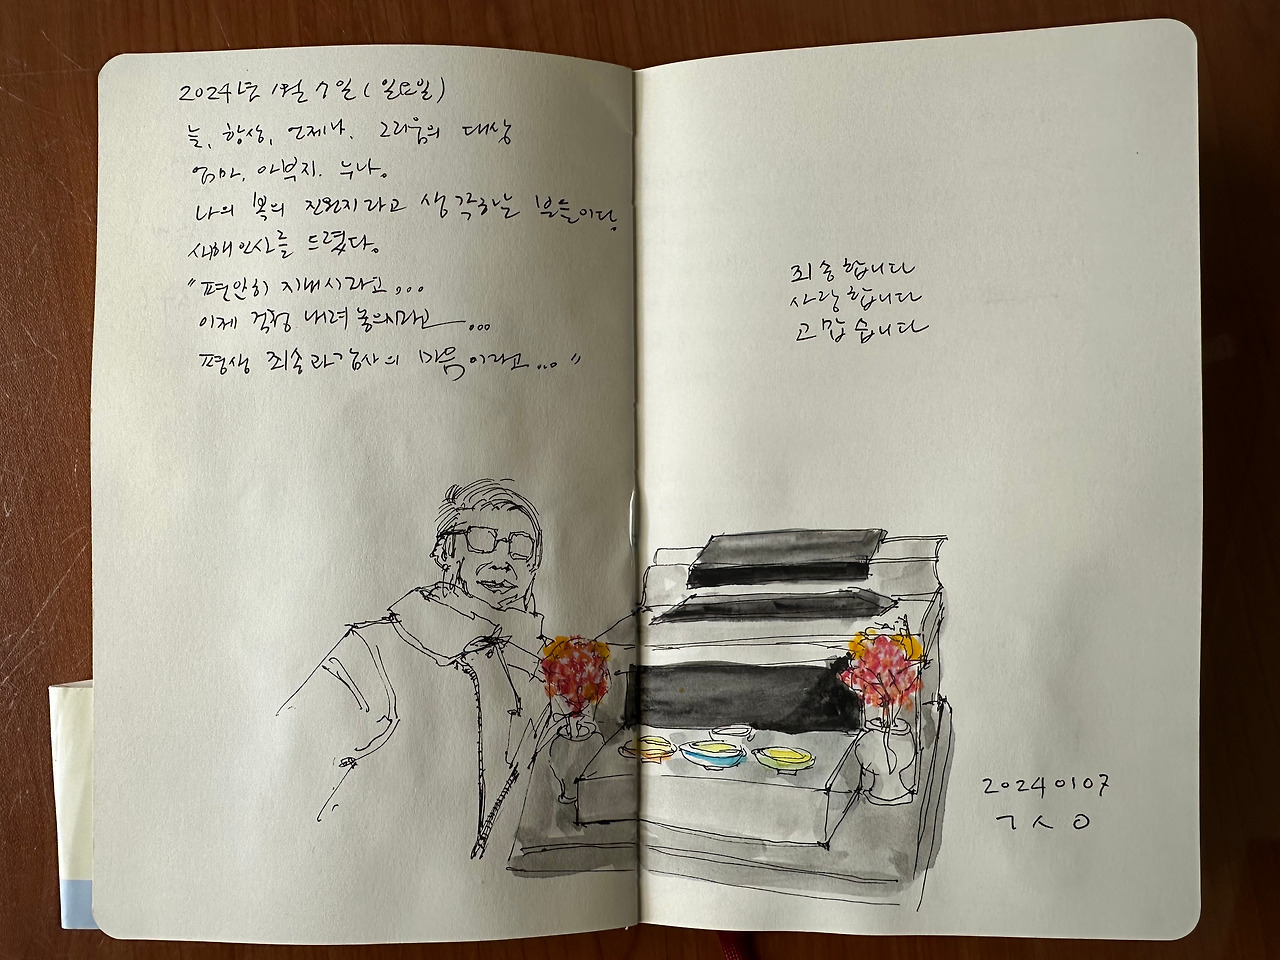 2024년 1월 7일 (일요일)
늘, 항상, 언제나, 그리움의 대상
엄마, 아부지, 누나.
나의 복의 진원지라고 생각하는 분들이다.
새해인사를 드렸다.
"편안히 지내시라고...
이제 걱정 내려놓으시라고...
평생 죄송과 감사의 마음이라고..."
죄송합니다
사랑합니다
고맙습니다
20240107
ㄱㅅㅇ